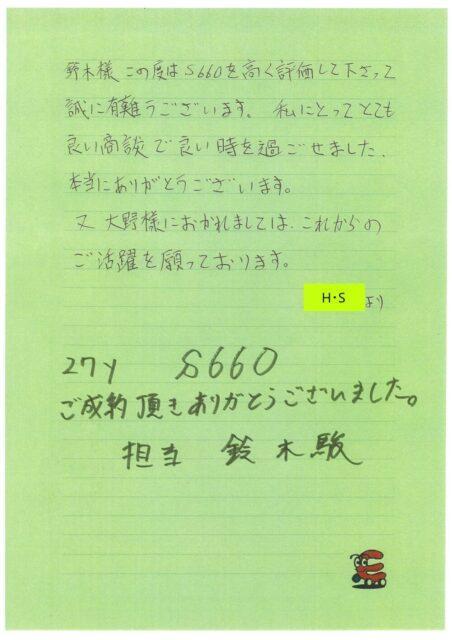 鈴木様 この度はS660を高く評価して下さって
誠に有難うございます。 私にとってとても
良い商談で良い時を過ごせました.
本当にありがとうございます。
又 大野様におかれましては、これからの
ご活躍を願っております。
H・S より
27y S660
ご成約頂きありがとうございました。
担当 鈴木駿